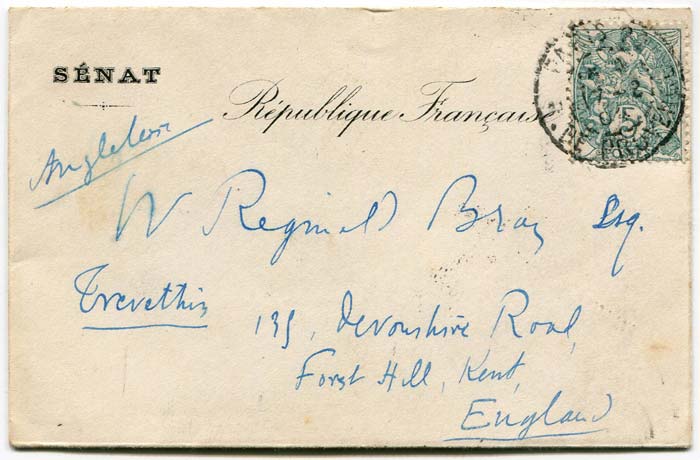 SÉNAT
République Française
Angleterre
W Reginald Bray Esq.
Trevethin
135, Devonshire Road,
Forst Hill, Kent,
England
PARIS
5